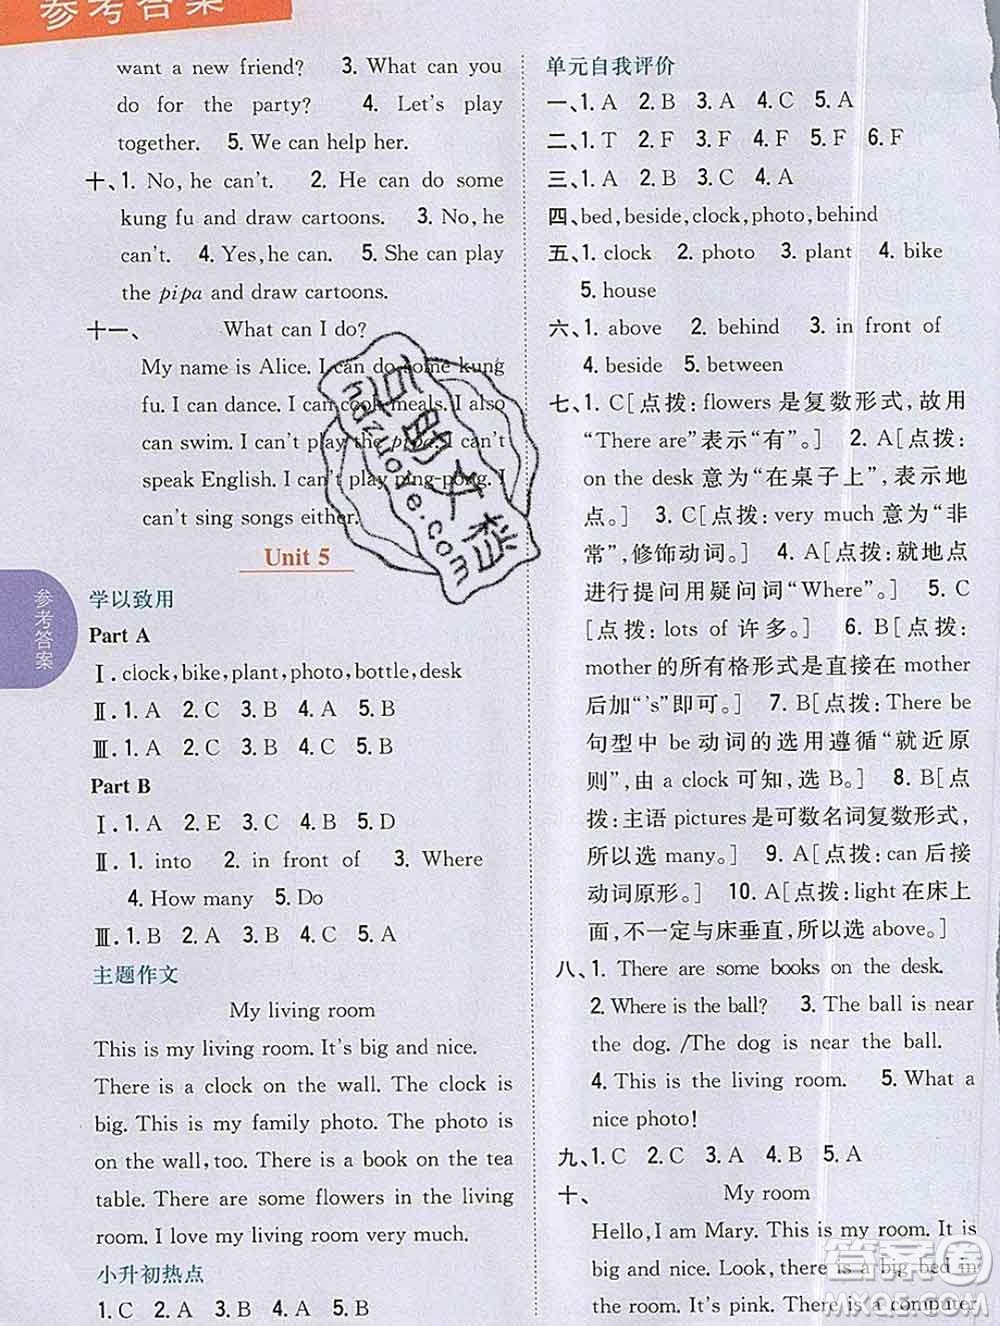 参考答案
want a new friend? 3. What can you
do for the party? 4. Let's play
together. 5. We can help her.
十、1. No, he can't. 2. He can do some
kung fu and draw cartoons. 3. No, he
can't. 4. Yes, he can. 5. She can play
the pipa and draw cartoons.
十一、 What can I do?
My name is Alice. I can do some kung
fu. I can dance. I can cook meals. I also
can swim. I can't play the pipa. I can't
speak English. I can't play ping-pong. I
can't sing songs either.
Unit 5
学以致用
Part A
Ⅰ. clock, bike, plant, photo, bottle, desk
Ⅱ. 1. A 2. C 3. B 4. A 5. B
Ⅲ. 1. A 2. C 3. B 4. C 5. B
Part B
Ⅰ. 1. A 2. E 3. C 4. B 5. D
Ⅱ. 1. into 2. in front of 3. Where
4. How many 5. Do
Ⅲ. 1. B 2. A 3. B 4. A 5. B
主题作文
My living room
This is my living room. It's big and nice.
There is a clock on the wall. The clock is
big. This is my family photo. The photo is
on the wall, too. There is a book on the tea
table. There are some flowers in the living
room. I love my living room very much.
小升初热点
1. C 2. A 3. B 4. A 5. B
参考答案
单元自我评价
一、1. A 2. B 3. A 4. C 5. A
二、1. T 2. F 3. F 4. T 5. F 6. F
三、1. A 2. B 3. C 4. A
四、bed, beside, clock, photo, behind
五、1. clock 2. photo 3. plant 4. bike
5. house
六、1. above 2. behind 3. in front of
4. beside 5. between
七、1. C[点拨:flowers 是复数形式，故用
“There are”表示“有”。] 2. A[点拨:
on the desk 意为“在桌子上”，表示地
点。] 3. C[点拨:very much 意为“非
常”，修饰动词。] 4. A[点拨:就地点
进行提问用疑问词“Where”。] 5. C
[点拨:lots of 许多。] 6. B[点拨:
mother 的所有格形式是直接在 mother
后加“'s”即可。] 7. B[点拨:There be
句型中 be 动词的选用遵循“就近原
则”，由 a clock 可知，选 B。] 8. B[点
拨:主语 pictures 是可数名词复数形式，
所以选 many。] 9. A[点拨:can 后接
动词原形。] 10. A[点拨:light 在床上
面，不一定与床垂直，所以选 above。]
八、1. There are some books on the desk.
2. Where is the ball? 3. The ball is near
the dog. /The dog is near the ball.
4. This is the living room. 5. What a
nice photo!
九、1. C 2. C 3. A 4. B 5. A
十、 My room
Hello, I am Mary. This is my room. It is
big and nice. Look, there is a big bed in
the room. It's pink. There is a computer
百明文档
hazuore.com
答案圈